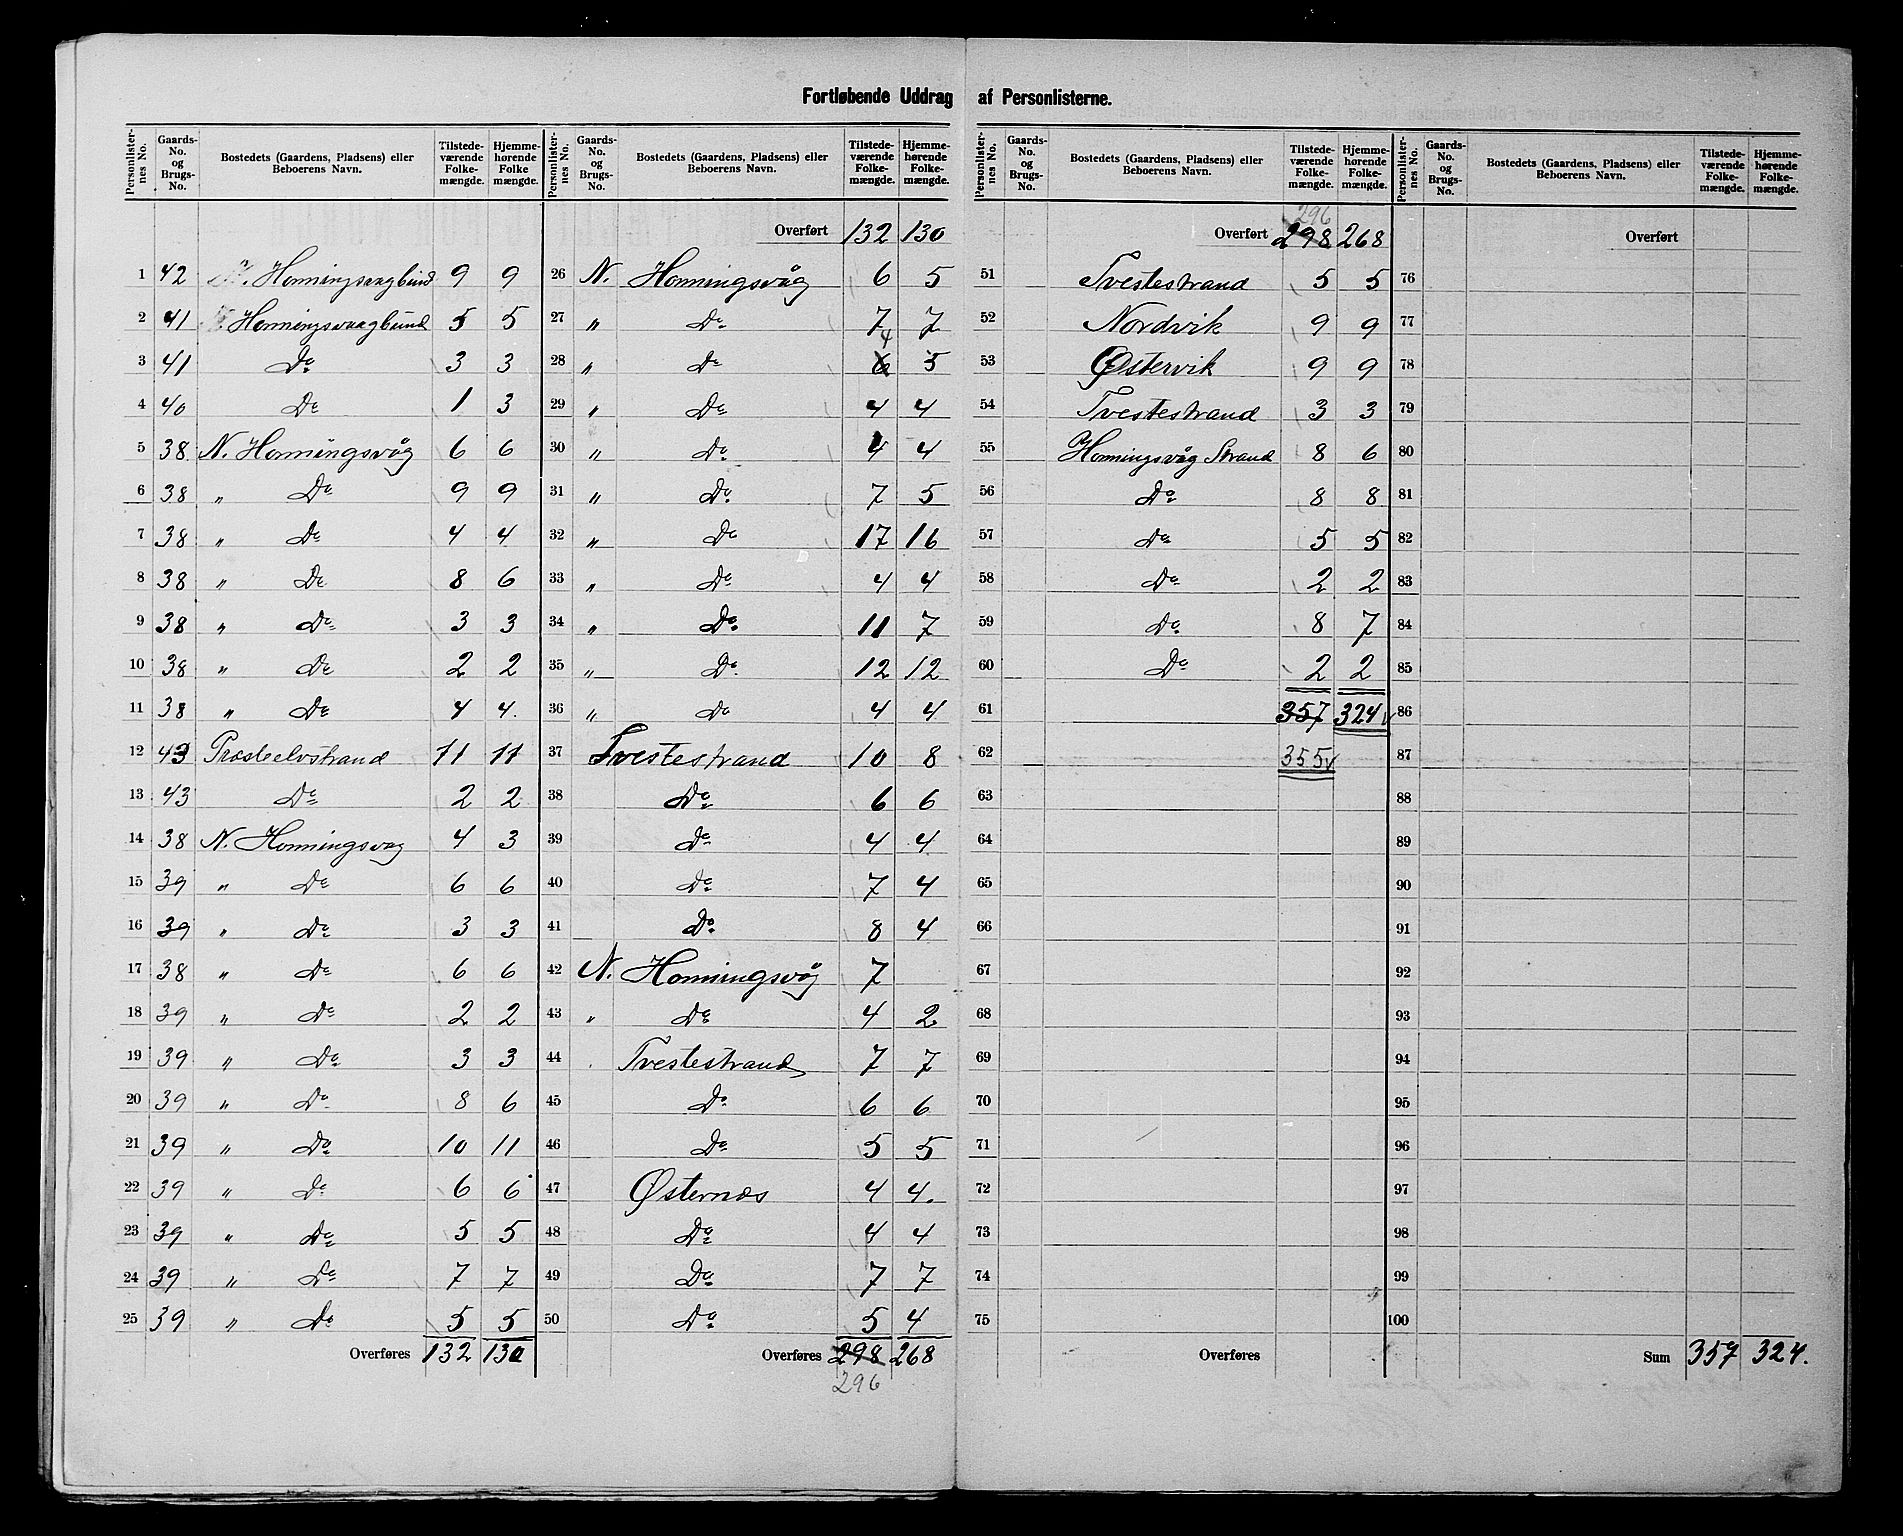 Fortløbende Uddrag af Personlisterne.
Personlister-nes No. | Gaards-No. og Brugs-No. | Bostedets (Gaardens, Pladsens) eller Beboerens Navn. | Tilstede-værende Folke-mængde. | Hjemme-hørende Folke mængde.
1 42 N. Honningsvagbund 9 9
2 41 N. Honningsvaagbund 5 5
3 41 Do 3 3
4 40 Do 1 3
5 38. N. Honningsvåg 6 6
6 38 " Do 9 9
7 38 " Do 4 4
8 38 " Do 8 6
9 38 " Do 3 3
10 38 " Do 2 2
11 38 " Do 4 4.
12 43 Præstelvstrand 11 11
13 43 Do 2 2
14 38 N. Honningsvag 4 3
15 39 " Do 6 6
16 39 " Do 3 3
17 38 " Do 6 6
18 39 " Do 2 2
19 39 " Do 3 3
20 39 " Do 8 6
21 39 " Do 10 11
22 39 " Do 6 6
23 39 " Do 5 5
24 39 " Do 7 7
25 39 " Do 5 5
Overføres 132 130
Personlister-nes No. | Gaards-No. og Brugs-No. | Bostedets (Gaardens, Pladsens) eller Beboerens Navn. | Tilstede-værende Folke-mængde. | Hjemme-hørende Folke-mængde.
Overført 132 130
26 N. Honningsvåg 6 5
27 " Do 7 7
28 " Do 6 4 5
29 " Do 4 4
30 " Do 4 4
31 " Do 7 5
32 " Do 17 16
33 " Do 4 4
34 " Do 11 7
35 " Do 12 12
36 " Do 4 4
37 Tvestestrand 10 8
38 Do 6 6
39 Do 4 4
40 Do 7 4
41 Do 8 4
42 N. Honningsvåg 7
43 " Do 4 2
44 Tvestestrand 7 7
45 Do 6 6
46 Do 5 5
47 Østernæs 4 4.
48 Do 4 4
49 Do 7 7
50 Do 5 4
Overføres 298 268
296
Personlister-nes No. | Gaards-No. og Brugs-No. | Bostedets (Gaardens, Pladsens) eller Beboerens Navn. | Tilstede-værende Folke-mængde. | Hjemme-hørende Folke-mængde.
296
Overført 298 268
51 Tvestestrand 5 5
52 Nordvik 9 9
53 Østervik 9 9
54 Tvestestrand 3 3
55 Honningsvåg Strand 8 6
56 Do 8 8
57 Do 5 5
58 Do 2 2
59 Do 8 7
60 Do 2 2
61 357 324 v
62 355 v
63
64
65
66
67
68
69
70
71
72
73
74
75
Overføres
Personlister-nes No. | Gaards-No. og Brugs-No. | Bostedets (Gaardens, Pladsens) eller Beboerens Navn. | Tilstede-værende Folke-mængde. | Hjemme-hørende Folke-mængde.
Overført
76
77
78
79
80
81
82
83
84
85
86
87
88
89
90
91
92
93
94
95
96
97
98
99
100
Sum 357 324.